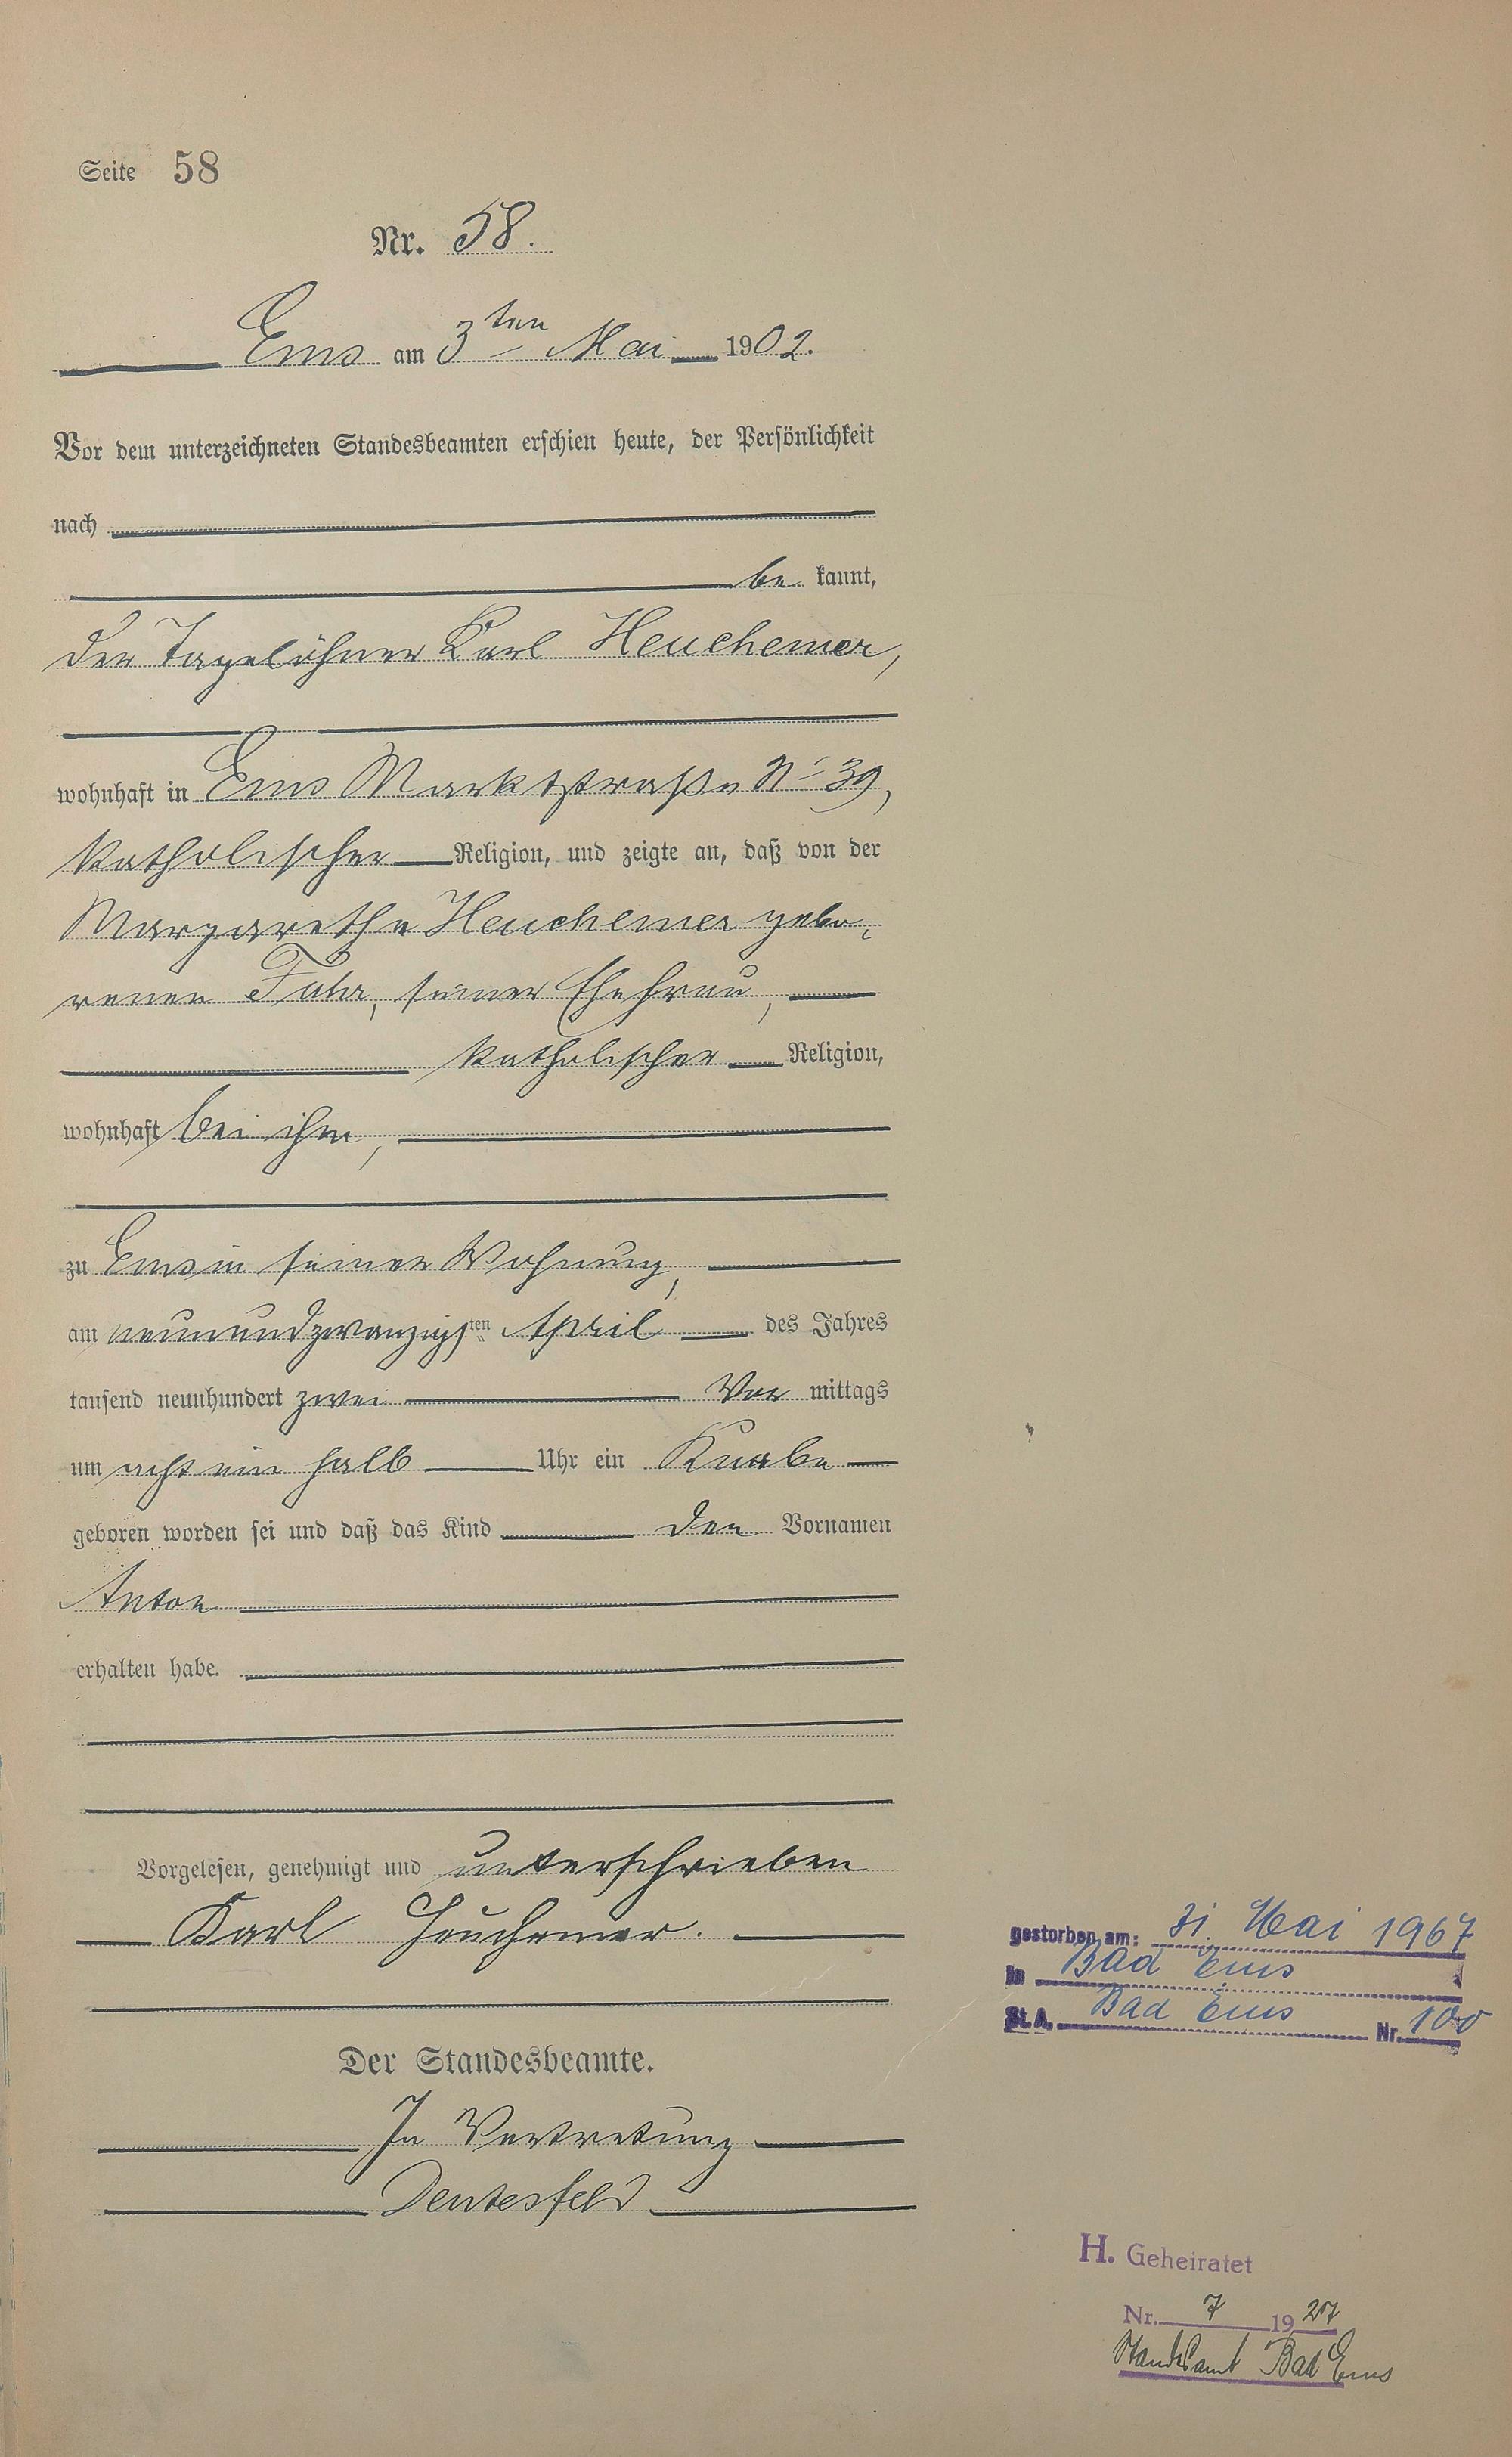 Seite 58
Nr. 58.
Ems am 3ten Mai 1902.
Vor dem unterzeichneten Standesbeamten erschien heute, der Persönlichkeit
nach
be kannt,
der Tagelöhner Karl Heuchemer,
wohnhaft in Ems Marktstraße No 39,
katholischer Religion, und zeigte an, daß von der
Margarethe Heuchemer gebo-
renen Fuhr, seiner Ehefrau,
katholischer Religion,
wohnhaft bei ihm,
zu Ems in seiner Wohnung,
am neunundzwanzigsten April des Jahres
tausend neunhundert zwei Vor mittags
um acht ein halb Uhr ein Knabe
geboren worden sei und daß das Kind den Vornamen
Anton
erhalten habe.
Vorgelesen, genehmigt und unterschrieben
Karl Heuchemer.
Der Standesbeamte.
In Vertretung
Deutesfeld
gestorben am: 31. Mai 1967
in Bad Ems
St.A. Bad Ems Nr. 100
H. Geheiratet
Nr. 7 1927
Standesamt Bad Ems